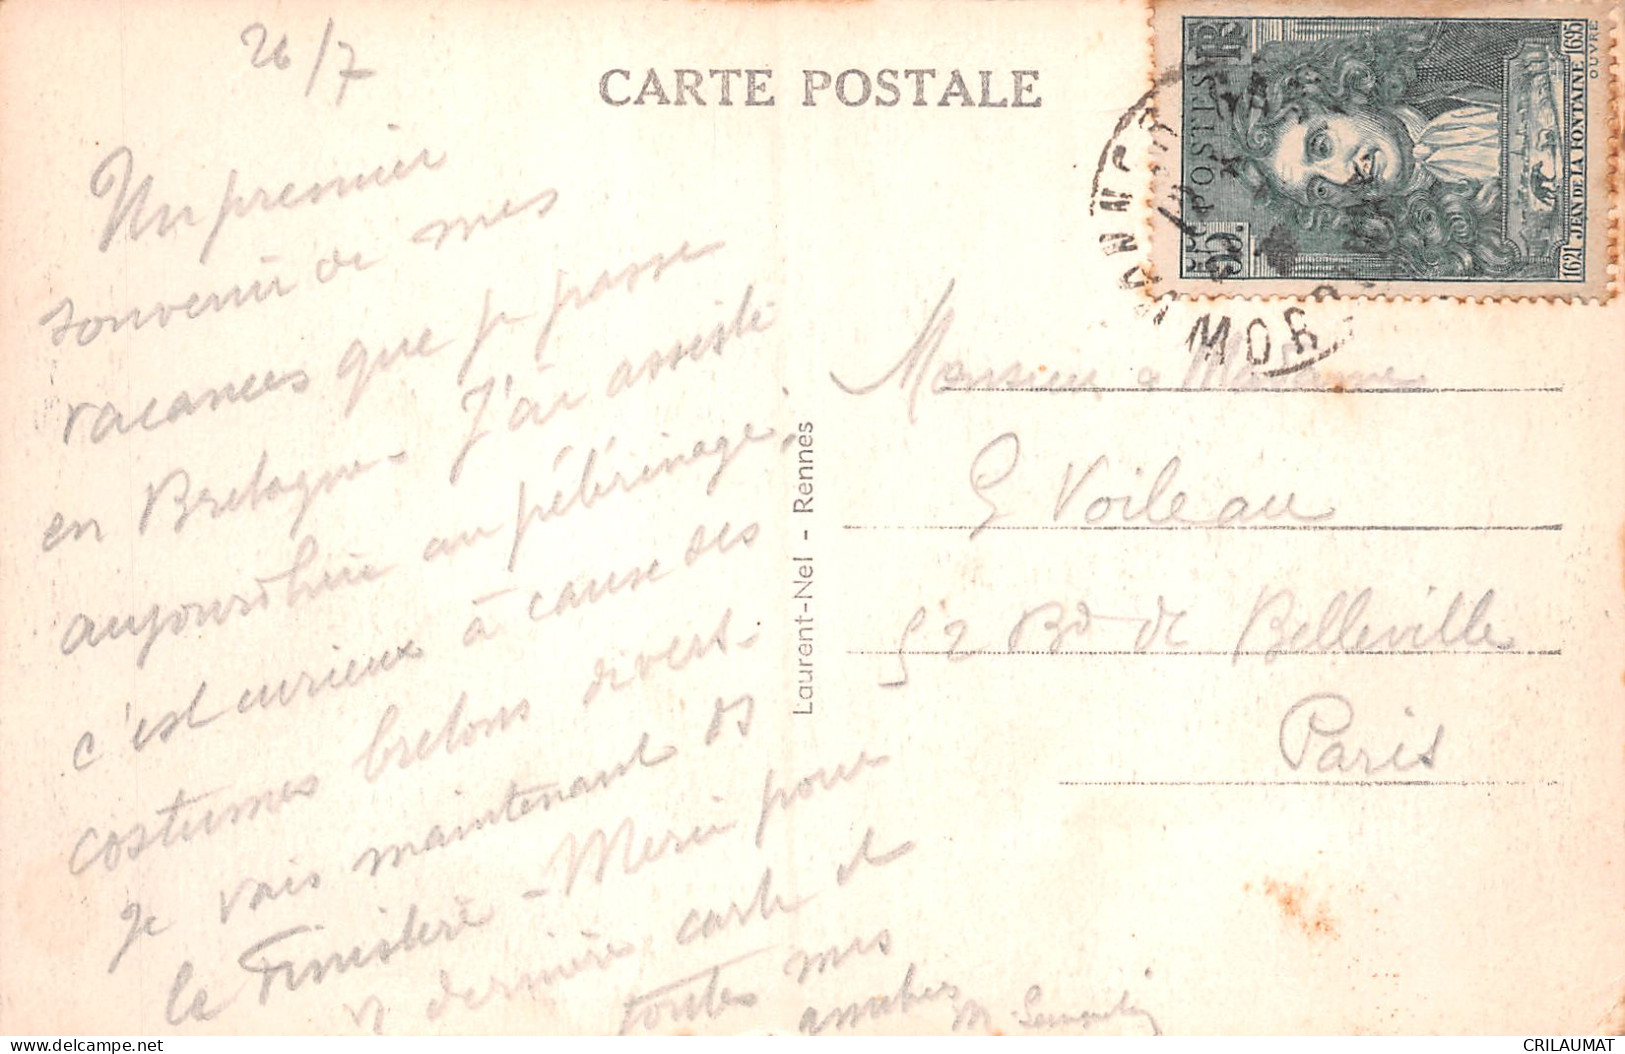 26/7
CARTE POSTALE
Un premier
souvenir de mes
vacances que je passe
en Bretagne - J'ai assisté
aujourd'hui au pélérinage,
c'est curieux à cause des
costumes bretons divers -
je vais maintenant ds
le Finistère - Merci pour
dernière carte et
toutes mes
amitiés
Laurent-Nel - Rennes
POSTES RF
55c.
1621 JEAN DE LA FONTAINE 1695
OUVRÉ
MOR
Monsieur & Madame
G Voileau
52 Bd de Belleville
Paris
CRILAUMAT